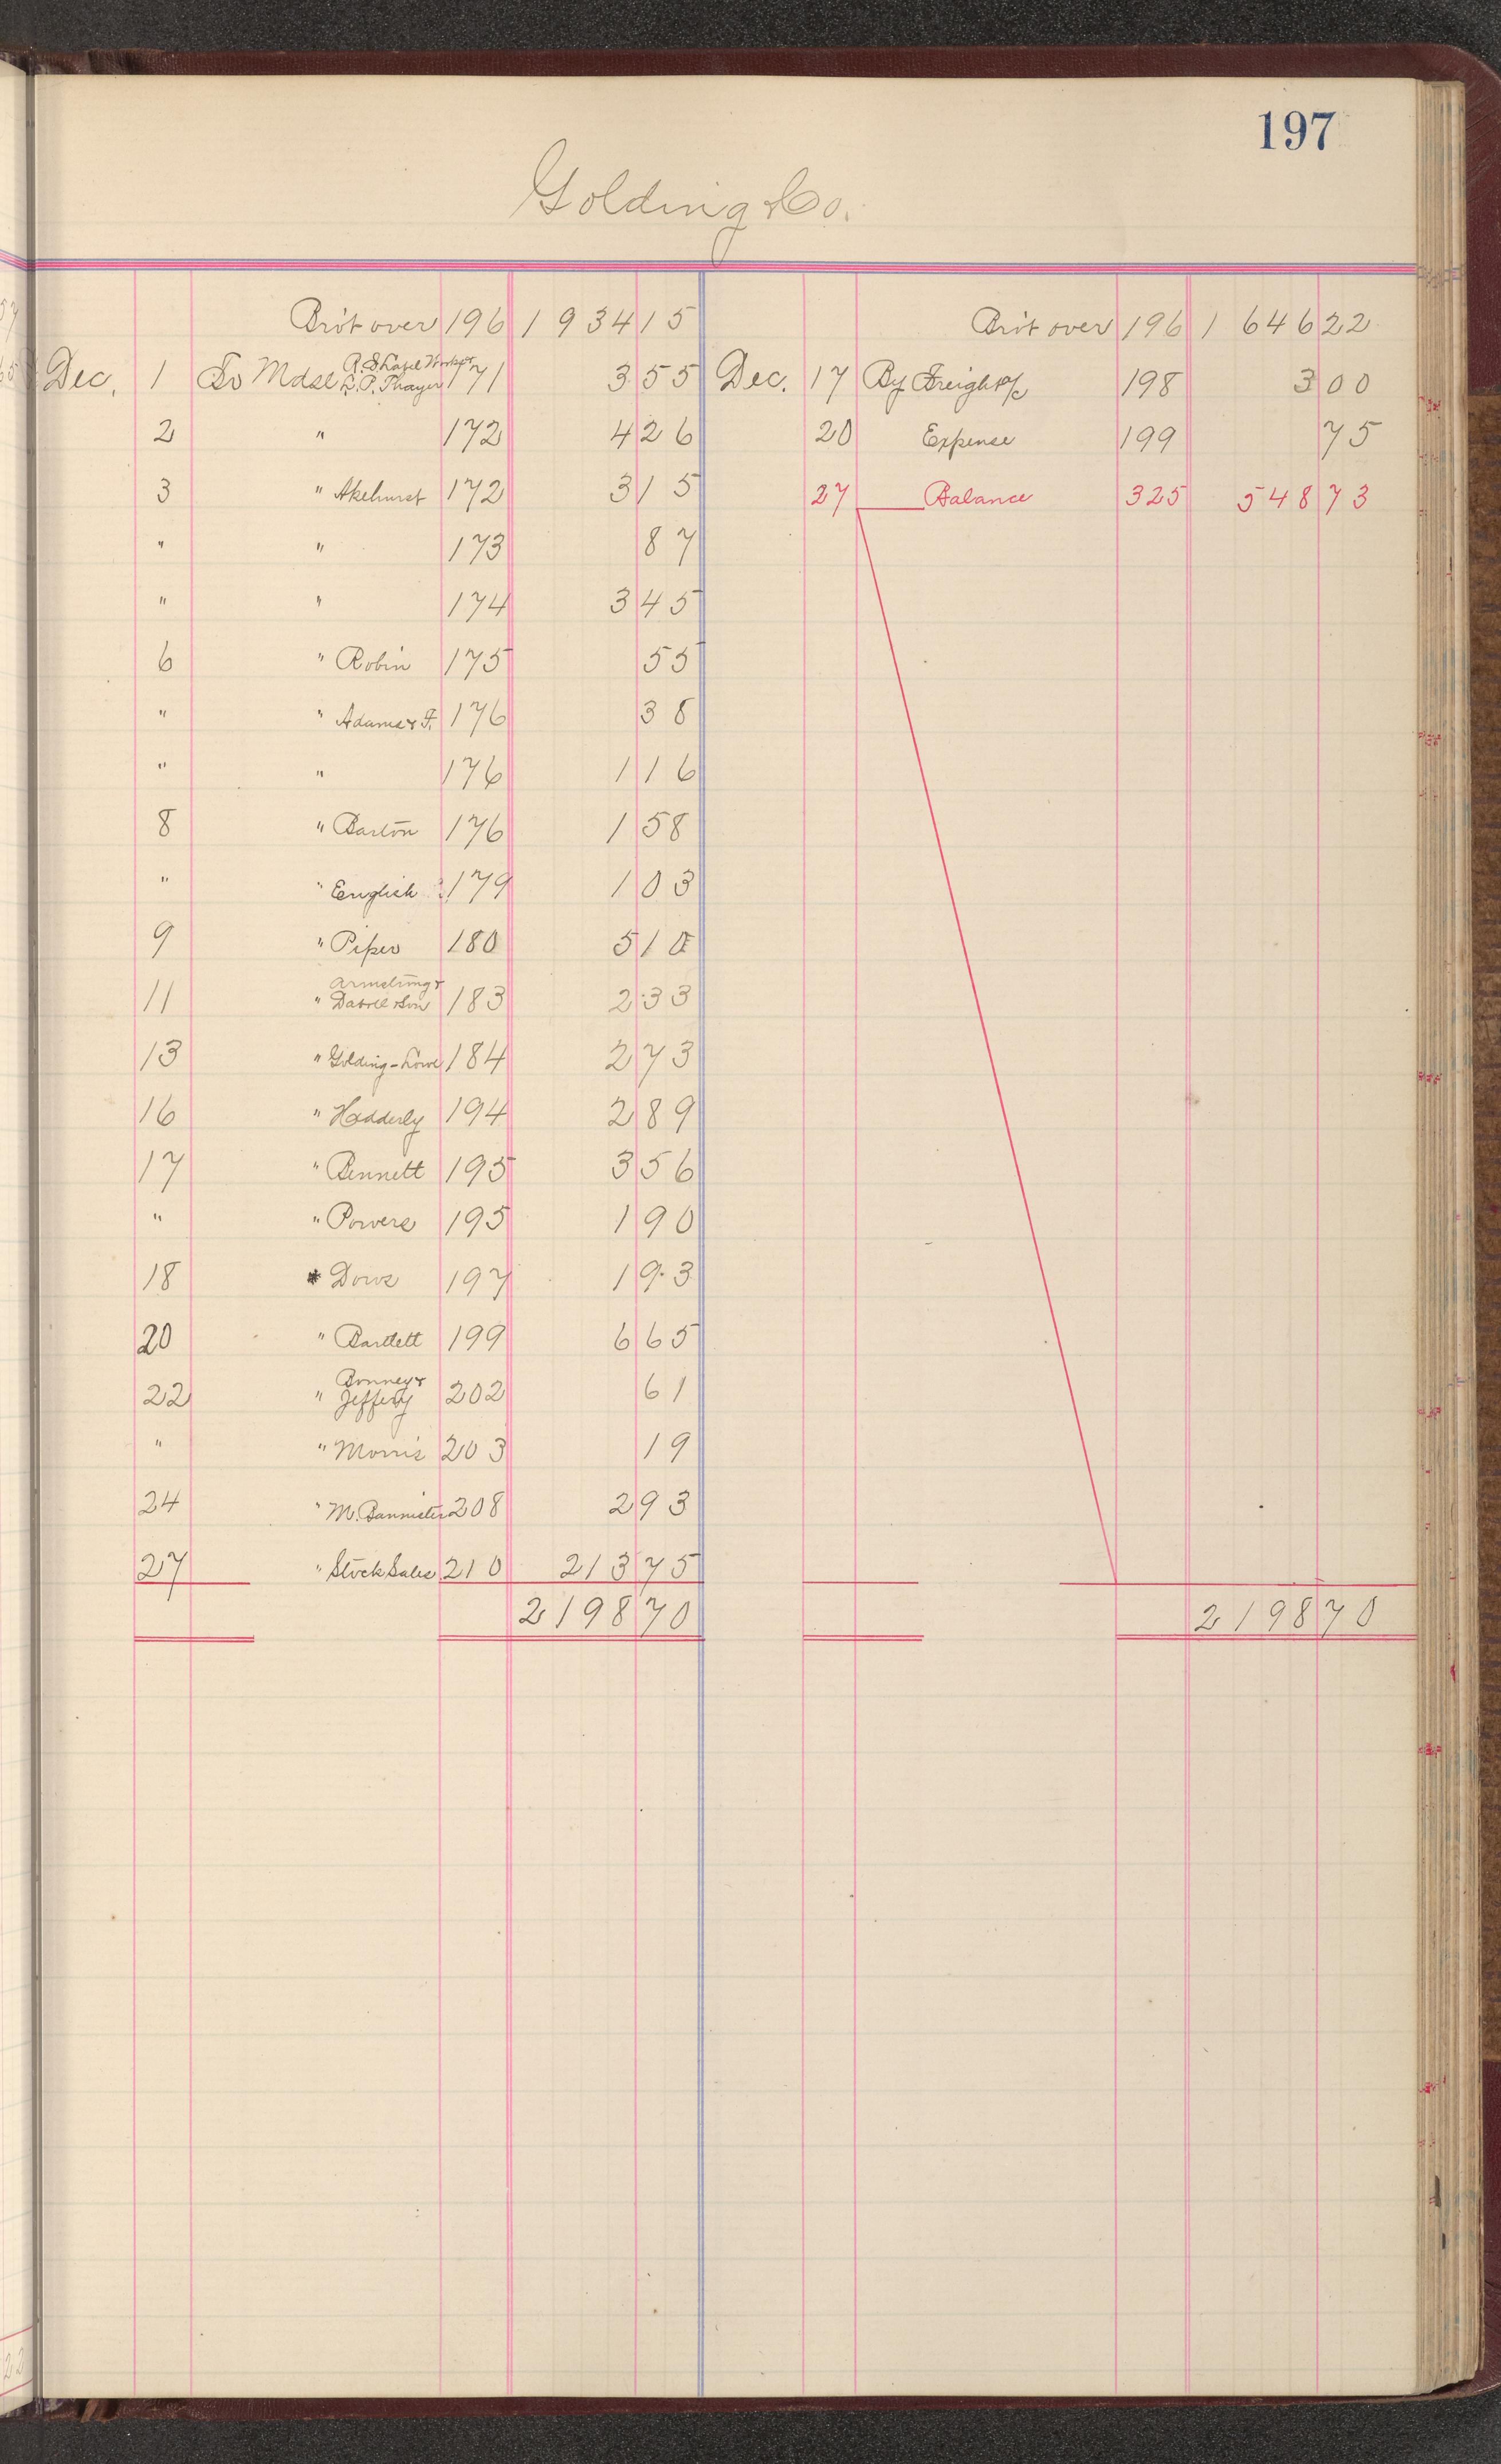 197
Golding & Co.
Bro't over 196 1 934 15
Dec. 1 To Mdse R. S. Works & L. P. Thayer 171 3 55
2 " 172 4 26
3 " Akehurst 172 3 15
" " 173 87
" " 174 3 45
6 " Robin 175 55
" " Adams & F. 176 38
" " 176 1 16
8 " Barton 176 1 58
" " English 179 1 03
9 " Piper 180 5 10
11 " Armstrong & & Son 183 2 33
13 " Golding - Lowe 184 2 73
16 " Hadderly 194 2 89
17 " Bennett 195 3 56
" " Powers 195 1 90
18 " Dows 197 1 93
20 " Bartlett 199 6 65
22 " Bonney & Jeffery 202 61
" " Morris 203 19
24 " M. Bannister 208 2 93
27 " Stock Sales 210 213 75
2 198 70
Bro't over 196 1 646 22
Dec. 17 By Freight a/c 198 3 00
20 Expense 199 75
27 Balance 325 548 73
2 198 70